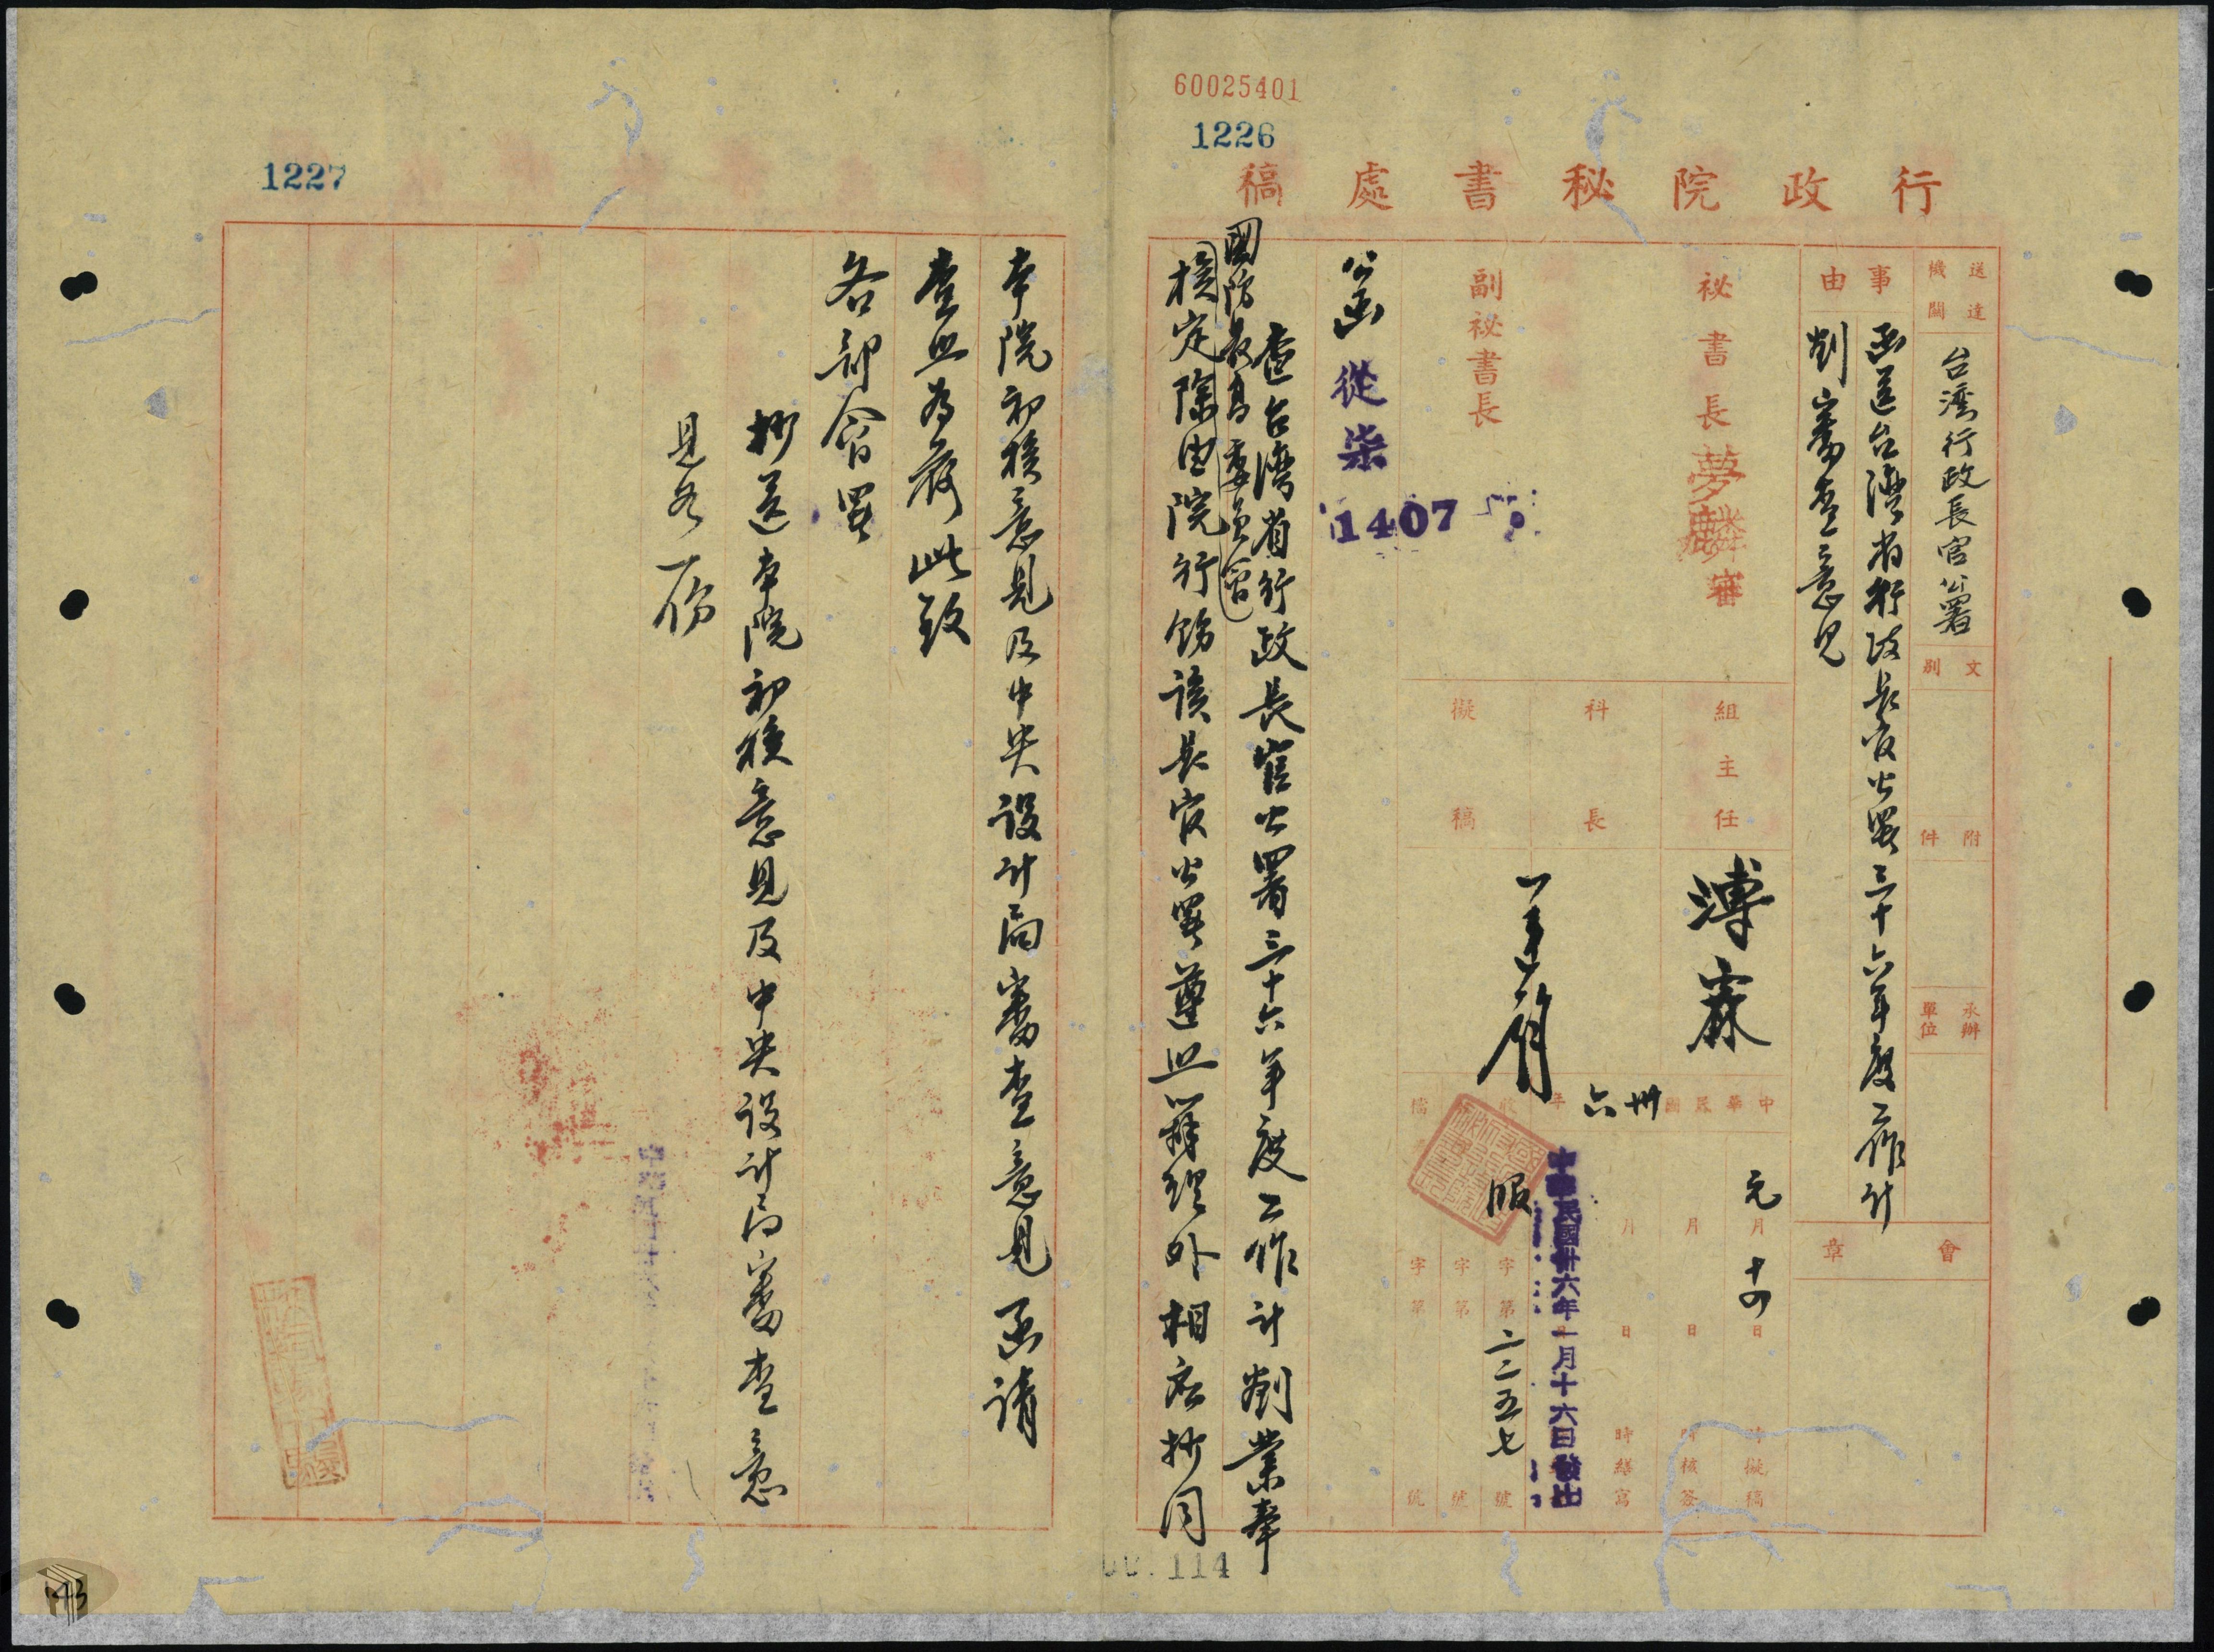 60025401
1226
行政院秘書處稿
送達機關
台湾行政長官公署
文別
附件
承辦單位
事由
函送台灣省行政長官公署三十六年度工作計
劃審查意見
會章
秘書長
夢麟
審
副秘書長
組主任
科長
擬稿
中華民國卅六年
元月十四日時擬稿
月日時核簽
月日時繕寫
中華民國卅六年一月十六日發出
收
字第二二五七號
字第號
檔
字第號
公函
從柒
1407
查台灣省行政長官公署三十六年度工作計劃業奉
國防最高委員會
核定除由院行飭該長官公署遵照辦理外相应抄同
本院初核意見及中央設計局審查意見函请
查照為荷此致
各部會署
抄送本院初核意見及中央設計局審查意
見各一份
1227
114